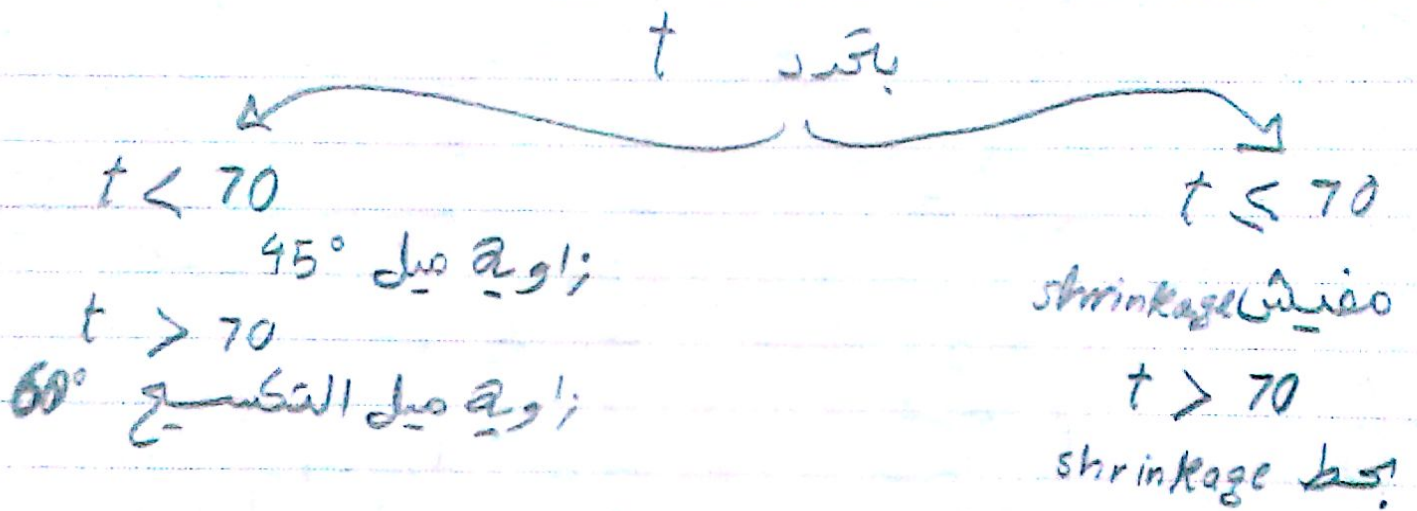 بتحدد t
t < 70
زاوية ميل 45°
t > 70
زاوية ميل التكسيح 60°
t ≤ 70
مفيش shrinkage
t > 70
بحط shrinkage